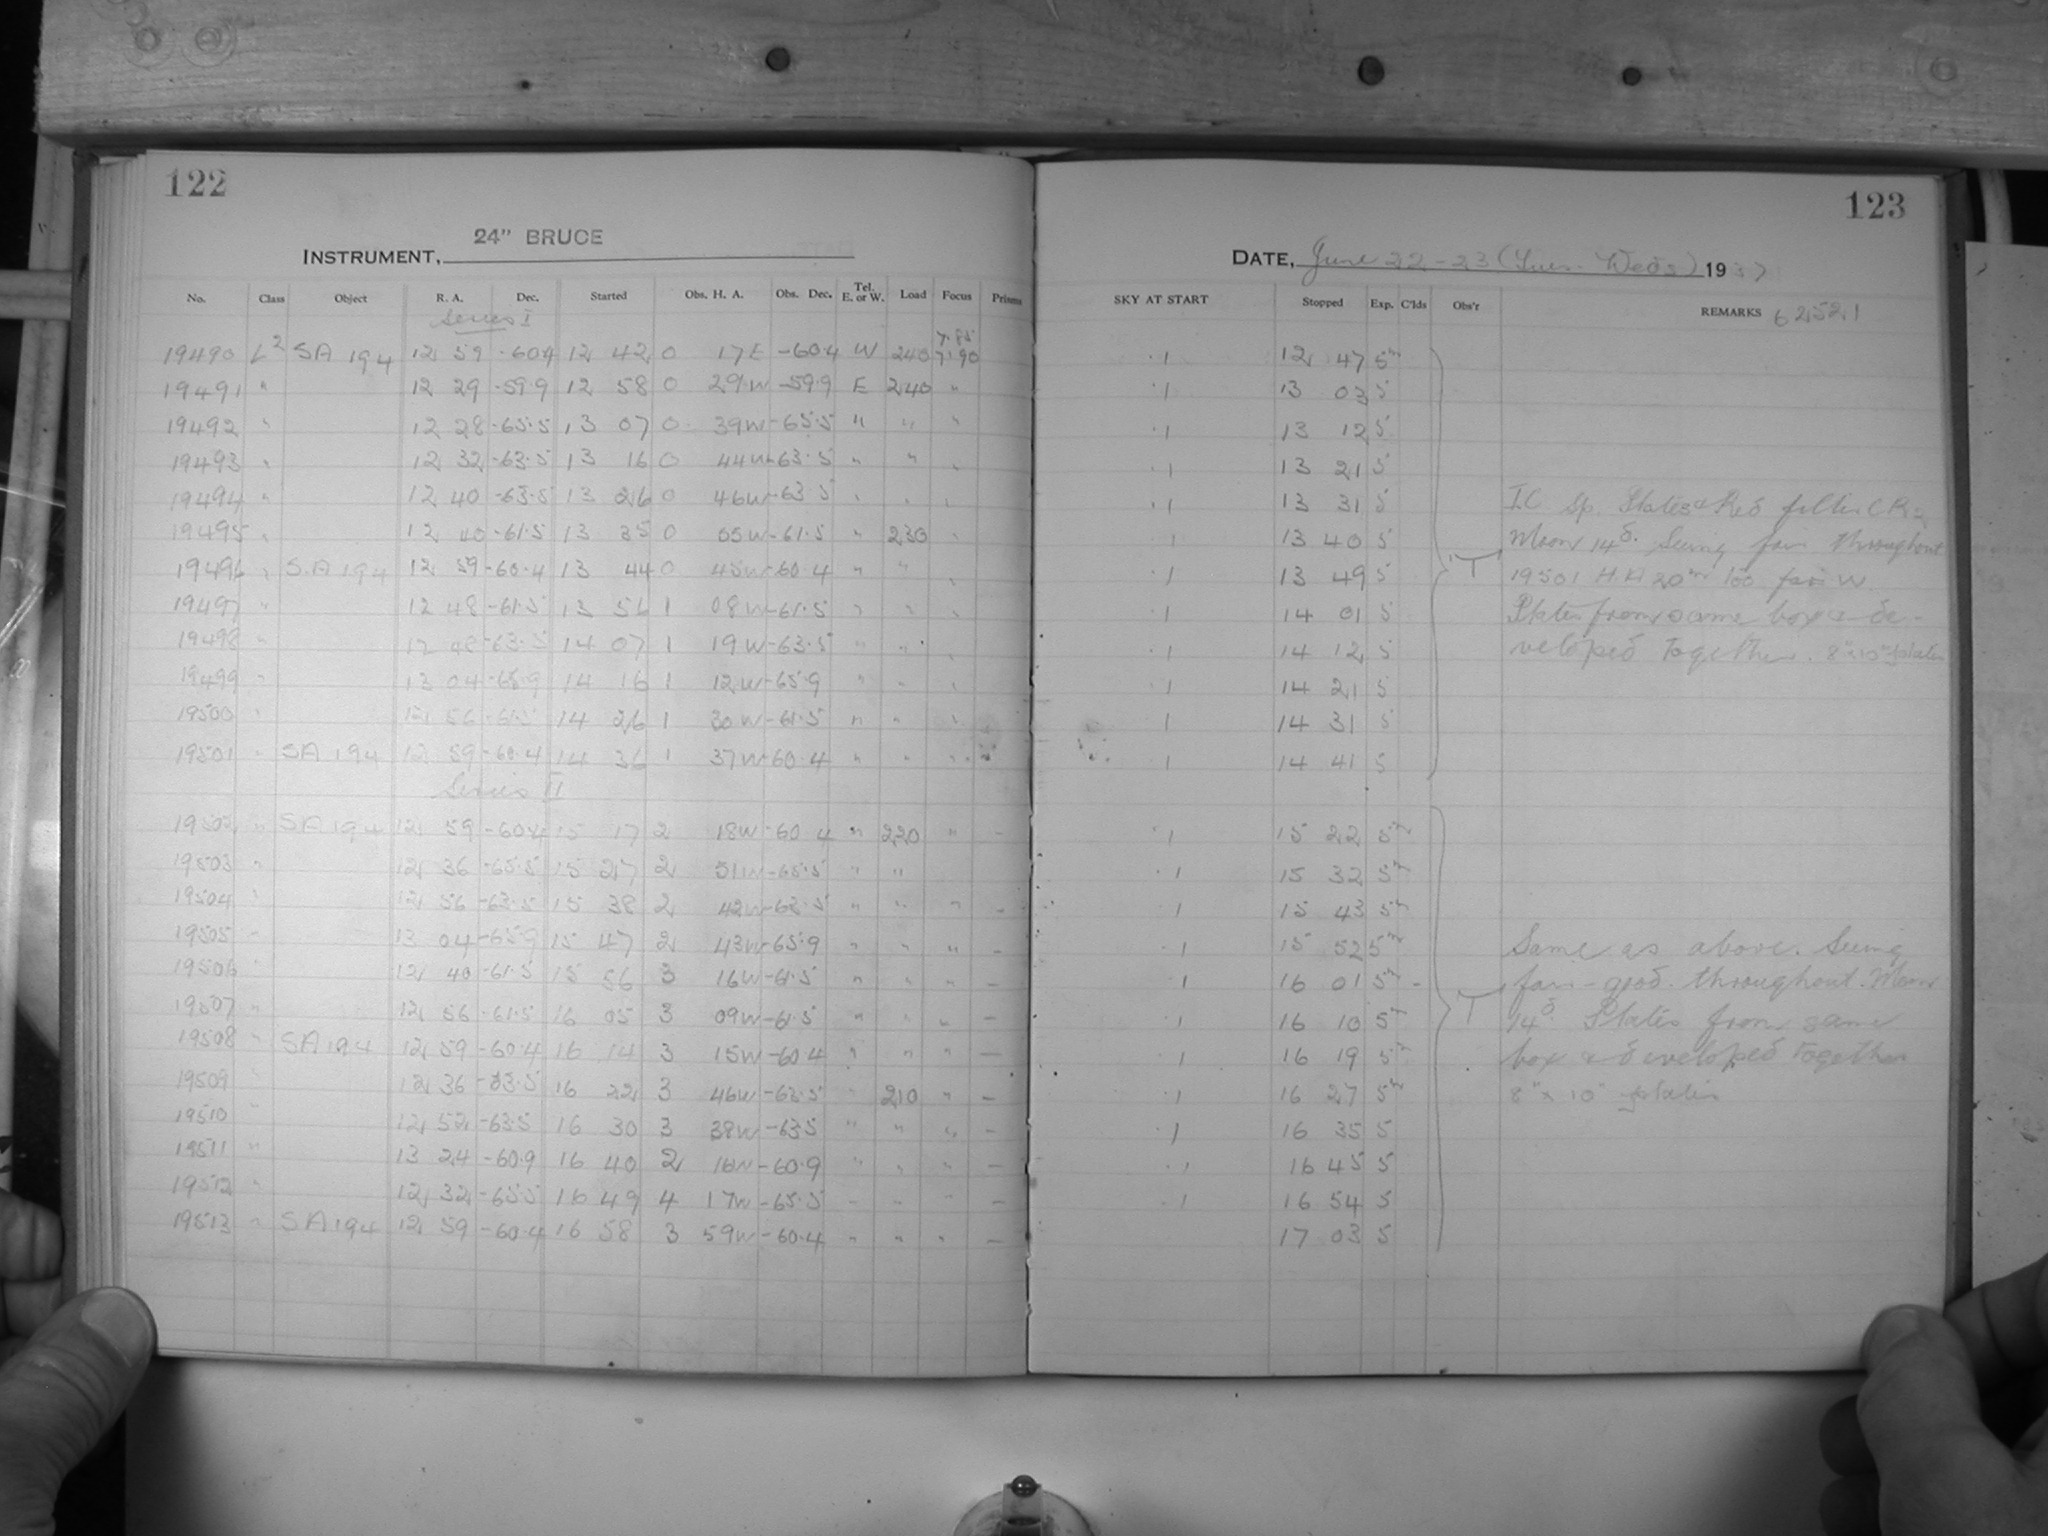 122
INSTRUMENT, 24" BRUCE
No. Class Object R. A. Dec. Started Obs. H. A. Obs. Dec. Tel. E. or W. Load Focus
Series I
7.85
19490 L2 SA 194 12 59 -60.4 12 42 0 17E -60.4 W 240 7.90
19491 " 12 29 -59.9 12 58 0 29W -59.9 E 240 "
19492 " 12 28 -65.5 13 07 0 39W -65.5 " " "
19493 " 12 32 -63.5 13 16 0 44W -63.5 " " "
19494 " 12 40 -63.5 13 26 0 46W -63.5 " " "
19495 " 12 40 -61.5 13 35 0 05W -61.5 " 230 "
19496 " SA 194 12 59 -60.4 13 44 0 45W -60.4 " " "
19497 " 12 48 -61.5 13 56 1 08W -61.5 " " "
19498 " 12 48 -63.5 14 07 1 19W -63.5 " " "
19499 " 13 04 -65.9 14 16 1 12W -65.9 " " "
19500 " 12 56 -61.5 14 26 1 30W -61.5 " " "
19501 " SA 194 12 59 -60.4 14 36 1 37W -60.4 " " "
Series II
19502 " SA 194 12 59 -60.4 15 17 2 18W -60.4 " 220 " -
19503 " 12 36 -65.5 15 27 2 51W -65.5 " "
19504 " 12 56 -63.5 15 38 2 42W -63.5 " " " -
19505 " 13 04 -65.9 15 47 2 43W -65.9 " " " -
19506 " 12 40 -61.5 15 56 3 16W -61.5 " " " -
19507 " 12 56 -61.5 16 05 3 09W -61.5 " " " -
19508 " SA 194 12 59 -60.4 16 14 3 15W -60.4 " " " -
19509 " 12 36 -63.5 16 22 3 46W -63.5 " 210 " -
19510 " 12 52 -63.5 16 30 3 38W -63.5 " " " -
19511 " 13 24 -60.9 16 40 2 16W -60.9 " " " -
19512 " 12 32 -65.5 16 49 4 17W -65.5 " " " -
19513 " SA 194 12 59 -60.4 16 58 3 59W -60.4 " " " -
123
DATE, June 22-23 (Tues. Weds) 1937
SKY AT START Stopped Exp. C'lds Obs'r REMARKS 62521
.1 12 47 5m
.1 13 03 5
.1 13 12 5
.1 13 21 5
.1 13 31 5
.1 13 40 5
.1 13 49 5
.1 14 01 5
.1 14 12 5
.1 14 21 5
.1 14 31 5
.1 14 41 5
T
IC Sp. Plates & Red filter
Moon 14d. Seeing fair throughout
19501 H.A 20m too far W
Plates from same box & de-
veloped together. 8"x10" plates
.1 15 22 5m
.1 15 32 5m
.1 15 43 5m
.1 15 52 5m
.1 16 01 5m -
.1 16 10 5m
.1 16 19 5m
.1 16 27 5m
.1 16 35 5
.1 16 45 5
.1 16 54 5
17 03 5
T
Same as above. Seeing
fair-good throughout. Moon
14d. Plates from same
box & developed together
8" x 10" plates